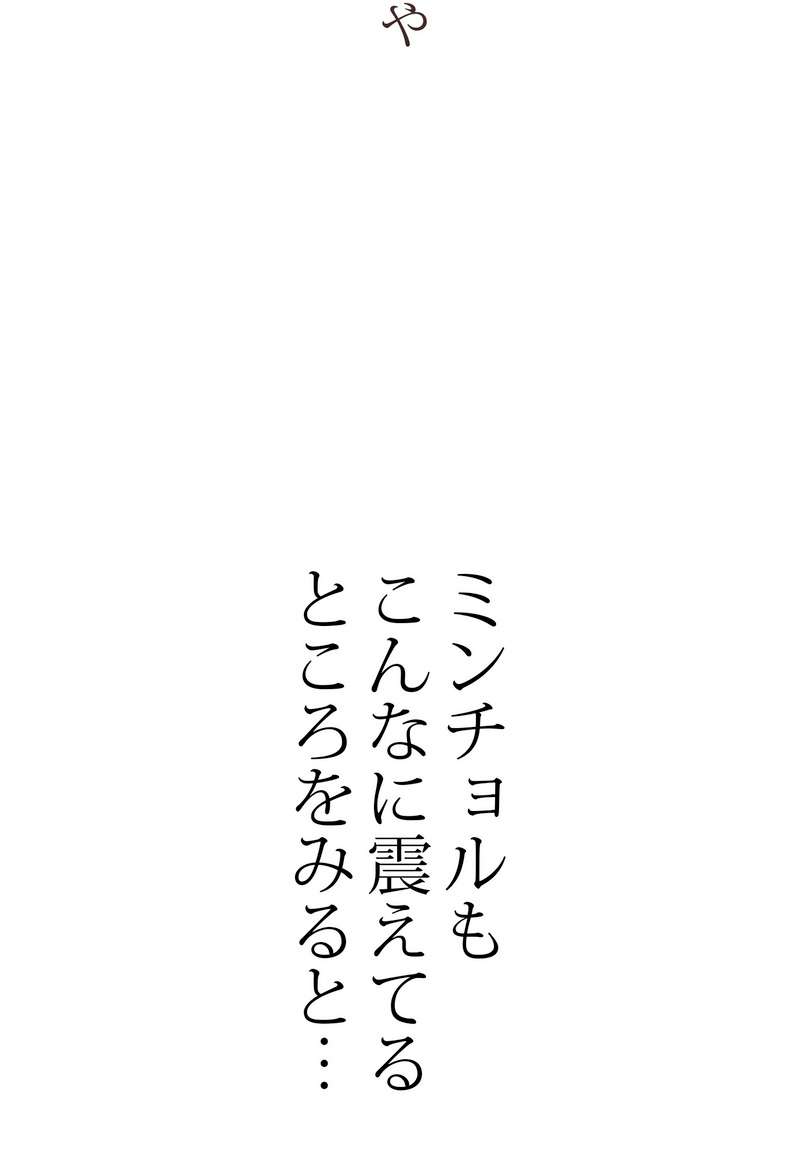 や
ミンチョルも
こんなに震えてる
ところをみると…